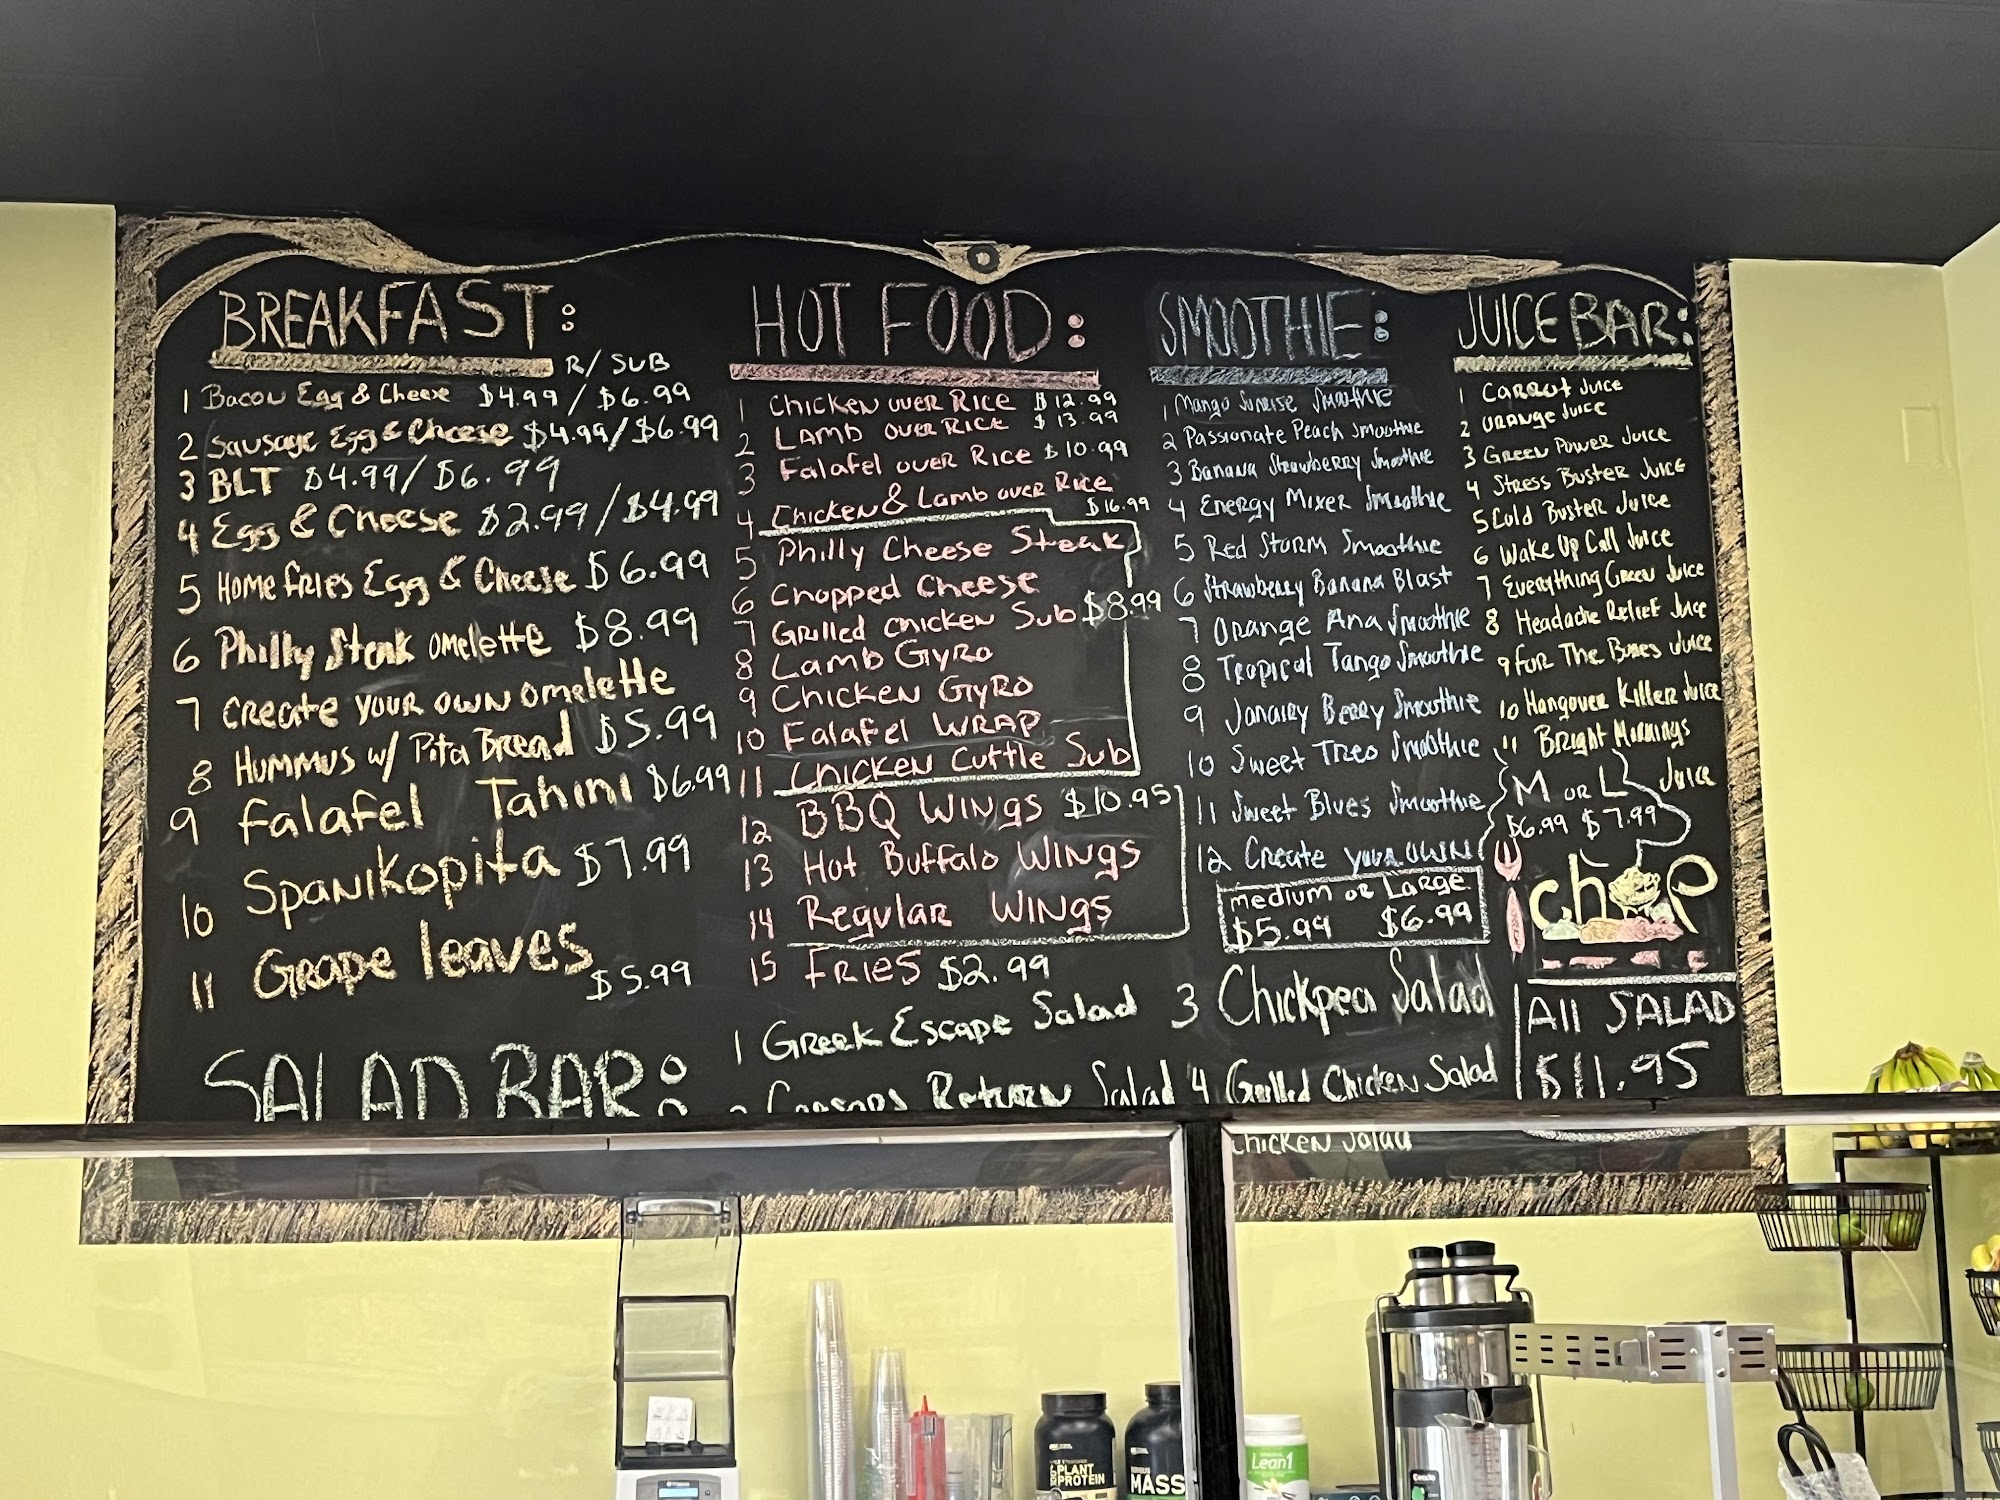 BREAKFAST:
R/ SUB
1 Bacon Egg & Cheese $4.99 / $6.99
2 Sausage Egg & Cheese $4.99/$6.99
3 BLT $4.99/ $6.99
4 Egg & Cheese $2.99 / $4.99
5 Home fries Egg & Cheese $6.99
6 Philly Steak omelette $8.99
7 create your own omelette
8 Hummus w/ Pita Bread $5.99
9 falafel Tahini $6.99
10 Spanikopita $7.99
11 Grape leaves $5.99
HOT FOOD:
1 Chicken over Rice $12.99
2 Lamb over Rice $13.99
3 Falafel over Rice $10.99
4 Chicken & Lamb over Rice
$16.99
5 Philly Cheese Steak
6 Chopped Cheese
7 Grilled chicken Sub $8.99
8 Lamb Gyro
9 Chicken Gyro
10 Falafel WRAP
11 Chicken Cuttle Sub
12 BBQ Wings $10.95
13 Hot Buffalo Wings
14 Regular Wings
15 Fries $2.99
SMOOTHIE:
1 Mango Sunrise Smoothie
2 Passionate Peach Smoothie
3 Banana Strawberry Smoothie
4 Energy Mixer Smoothie
5 Red Storm Smoothie
6 Strawberry Banana Blast
7 Orange Ana Smoothie
8 Tropical Tango Smoothie
9 Janairy Berry Smoothie
10 Sweet Treo Smoothie
11 Sweet Blues Smoothie
12 Create your own
Medium or Large
$5.99 $6.99
JUICE BAR:
1 Carrot Juice
2 Orange Juice
3 Green Power Juice
4 Stress Buster Juice
5 Cold Buster Juice
6 Wake Up Call Juice
7 Everything Green Juice
8 Headache Relief Juice
9 For The Bones Juice
10 Hangover Killer Juice
11 Bright Mornings
Juice
M or L
$6.99 $7.99
chop
SALAD BAR:
1 Greek Escape Salad
Return Salad
3 Chickpea Salad
4 Grilled Chicken Salad
Chicken Salad
All SALAD
$11.95
PLANT
PROTEIN
MASS
Lean1